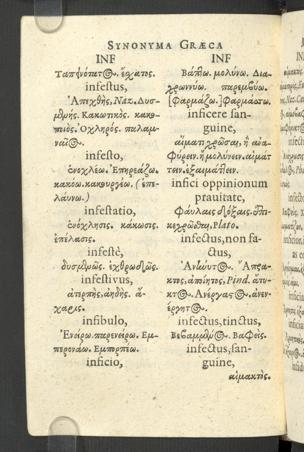 SYNONYMA GRÆCA
INF
Ταπεινότατος. ἔσχατος.
infestus,
Ἀπεχθής. Naz. Δυσ-
μενής. Κακωτικός. κακο-
ποιός. Ὀχληρός. παλαμ-
ναῖος.
infesto,
ἐνοχλέω. Ἐπηρεάζω.
κακόω. κακουργέω. (ἐπε-
λαύνω.)
infestatio,
ἐνόχλησις. κάκωσις.
ἐπέλασις.
infestè,
δυσμενῶς. ἐχθρωδῶς.
infestivus,
ἀτερπής. ἀηδής. ἄ-
χαρις.
infibulo,
Ἐνείρω. παρενείρω. Ἐμ-
περονάω. Ἐμπορπέω.
inficio,
INF
Βάπτω. μολύνω. Δια-
χρωννύω. παρεμβύω.
[Φαρμάζω.] Φαρμάσσω.
inficere san-
guine,
αἵματι χρῶσαι, ἢ ἀνα-
φύρειν. ἢ μολύνειν. αἱματ-
τειν. ἐξαιμάττειν.
infici oppinionum
prauitate,
φαύλαις δόξαις. ἐπι-
κεχρῶσθαι, Plato.
infectus, non fa-
ctus,
Ἀνίωυτος. Ἄπρα-
κτος. ἀποίητος, Pind. ἄτυ-
κτος. Ἀνέργαστος. ἀνεν-
έργητος.
infectus, tinctus,
Βεβαμμένος. Βαφείς.
infectus, san-
guine,
αἱμακτός.